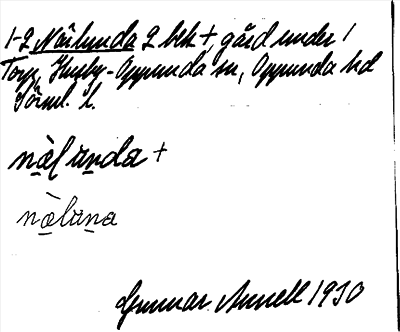 1-2 Närlunda 2 bek +, gård under 1
Torp, Husby-Oppunda sn, Oppunda hd
Sörml. l.
næ̀lunda +
næ̀luna
Gunnar Annell 1930